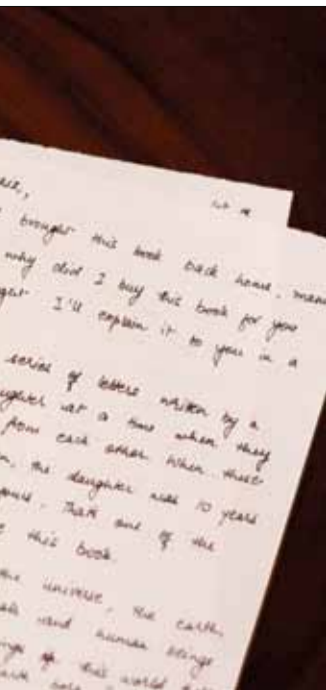 brought this book back home, man
why did I buy this book for you
I'll explain it to you in a
series of letters written by a
daughter at a time when they
from each other. When these
the daughter was 10 years
That's one of the
this book.
the universe, the earth,
and human beings
this world